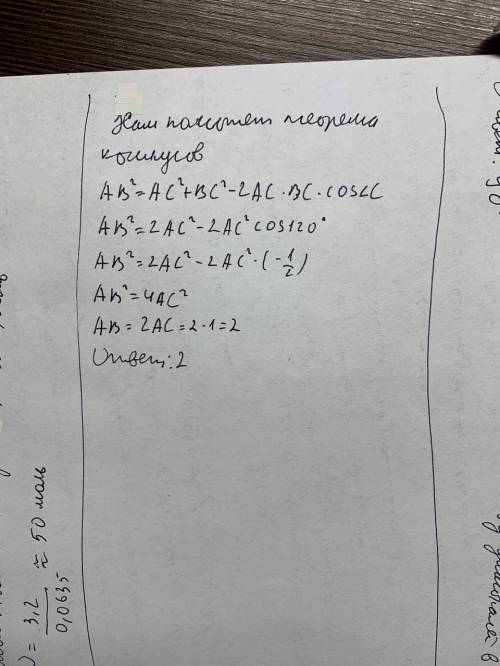 Нам поможет теорема
косинусов
AB²=AC²+BC²-2AC·BC·COS∠C
AB²=2AC²-2AC²COS120°
AB²=2AC²-2AC²·(-1/2)
AB²=4AC²
AB=2AC=2·1=2
Ответ:2
)= 3,2/0,0635 ≈ 50 моль